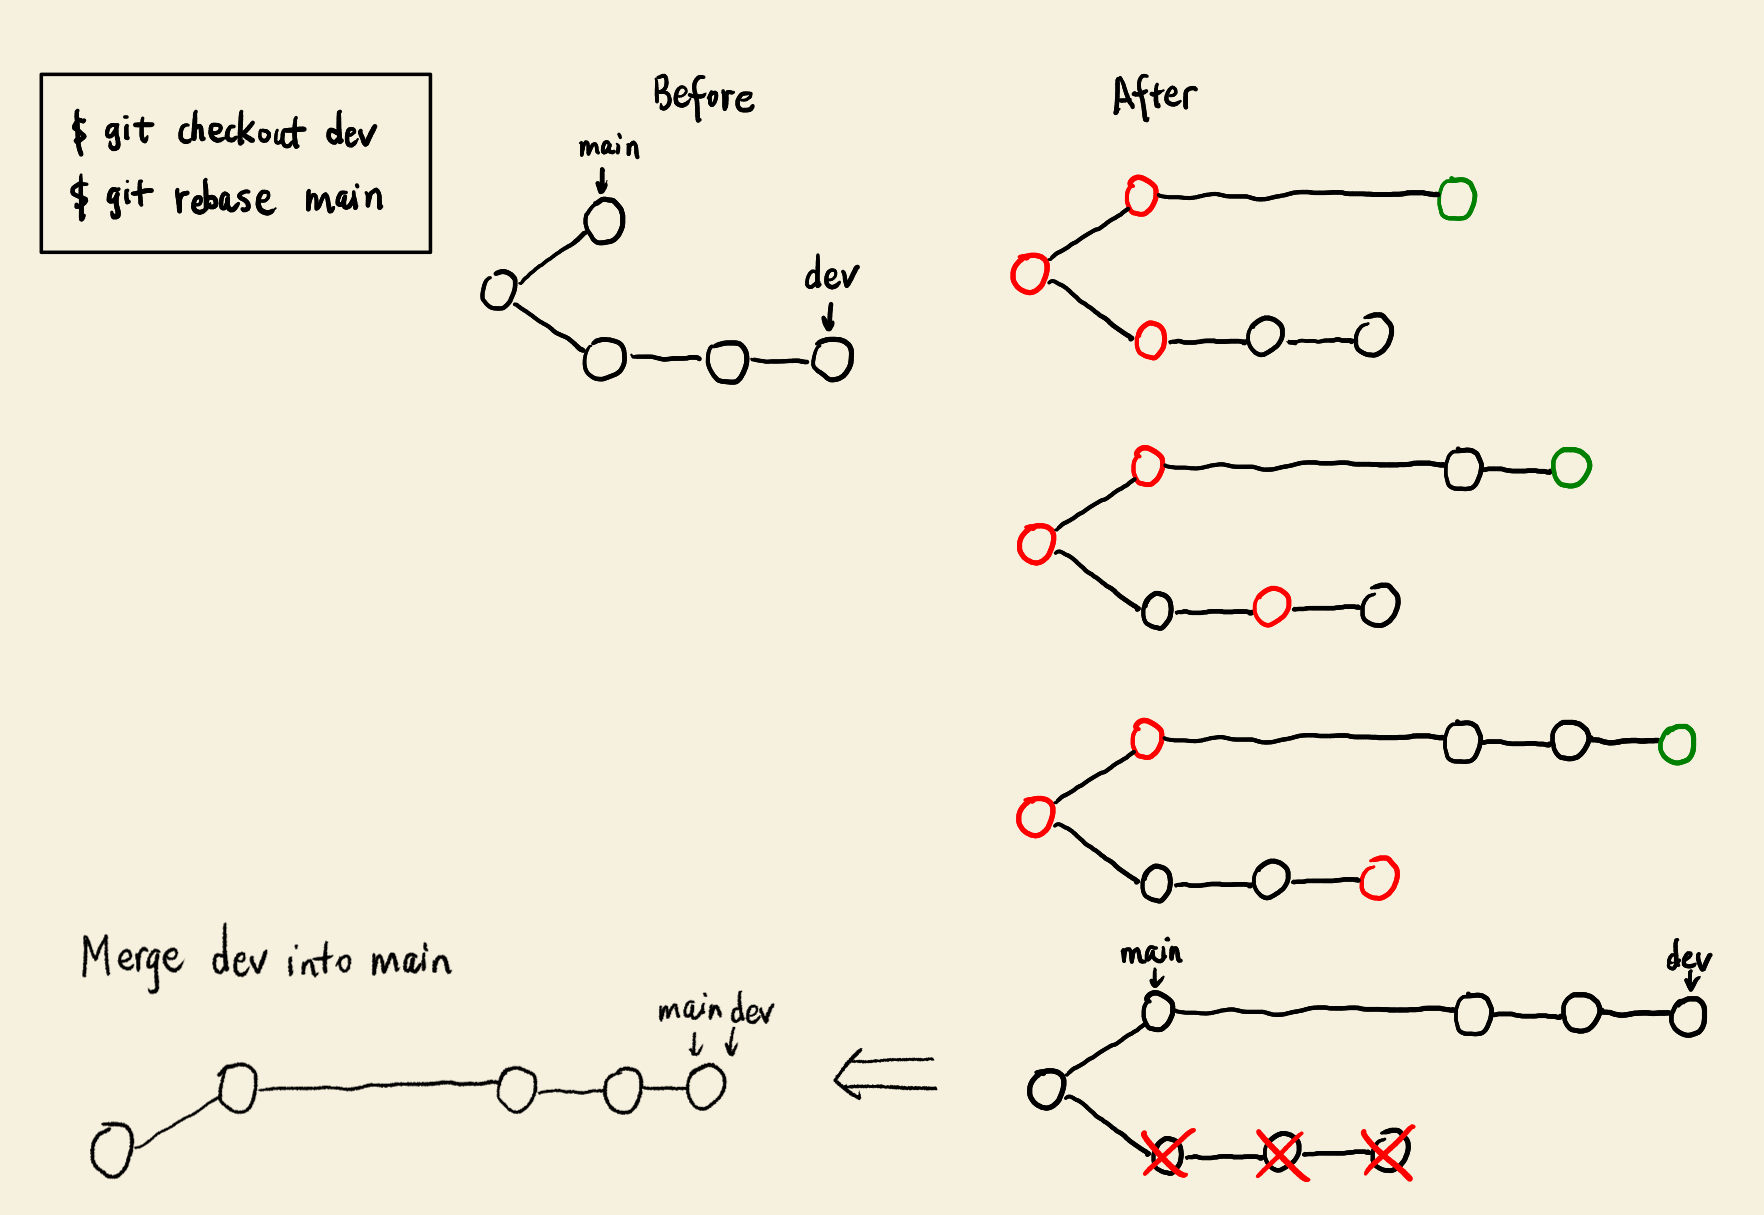 $ git checkout dev
$ git rebase main
Before
After
main
dev
main
dev
Merge dev into main
main dev